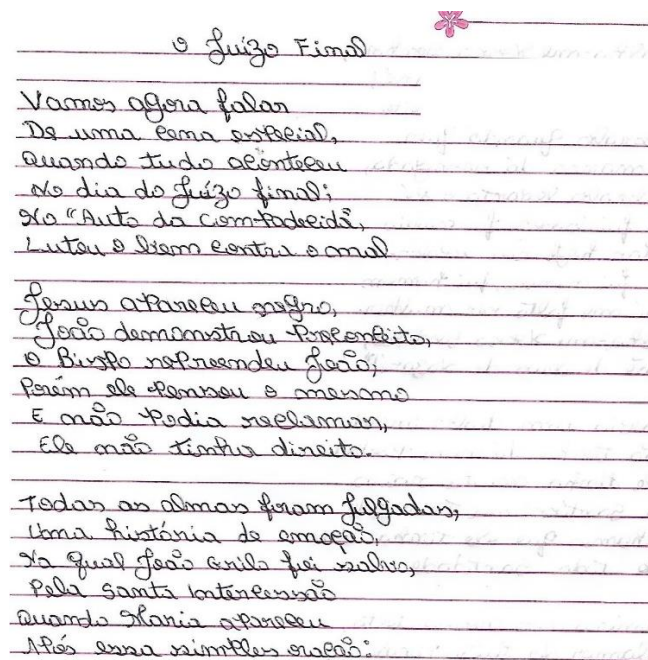 O Juízo Final
Vamos agora falar
De uma cena especial,
Quando tudo aconteceu
No dia do Juízo final;
No "Auto da Compadecida",
Lutou o bem contra o mal
Jesus apareceu negro,
João demonstrou preconceito,
O Bispo repreendeu João,
Porém ele pensou o mesmo
E não podia reclamar,
Ele não tinha direito.
Todas as almas foram julgadas,
Uma história de emoção,
Na qual João Grilo foi salvo,
Pela santa intercessão
Quando Maria apareceu
Após essa simples oração: